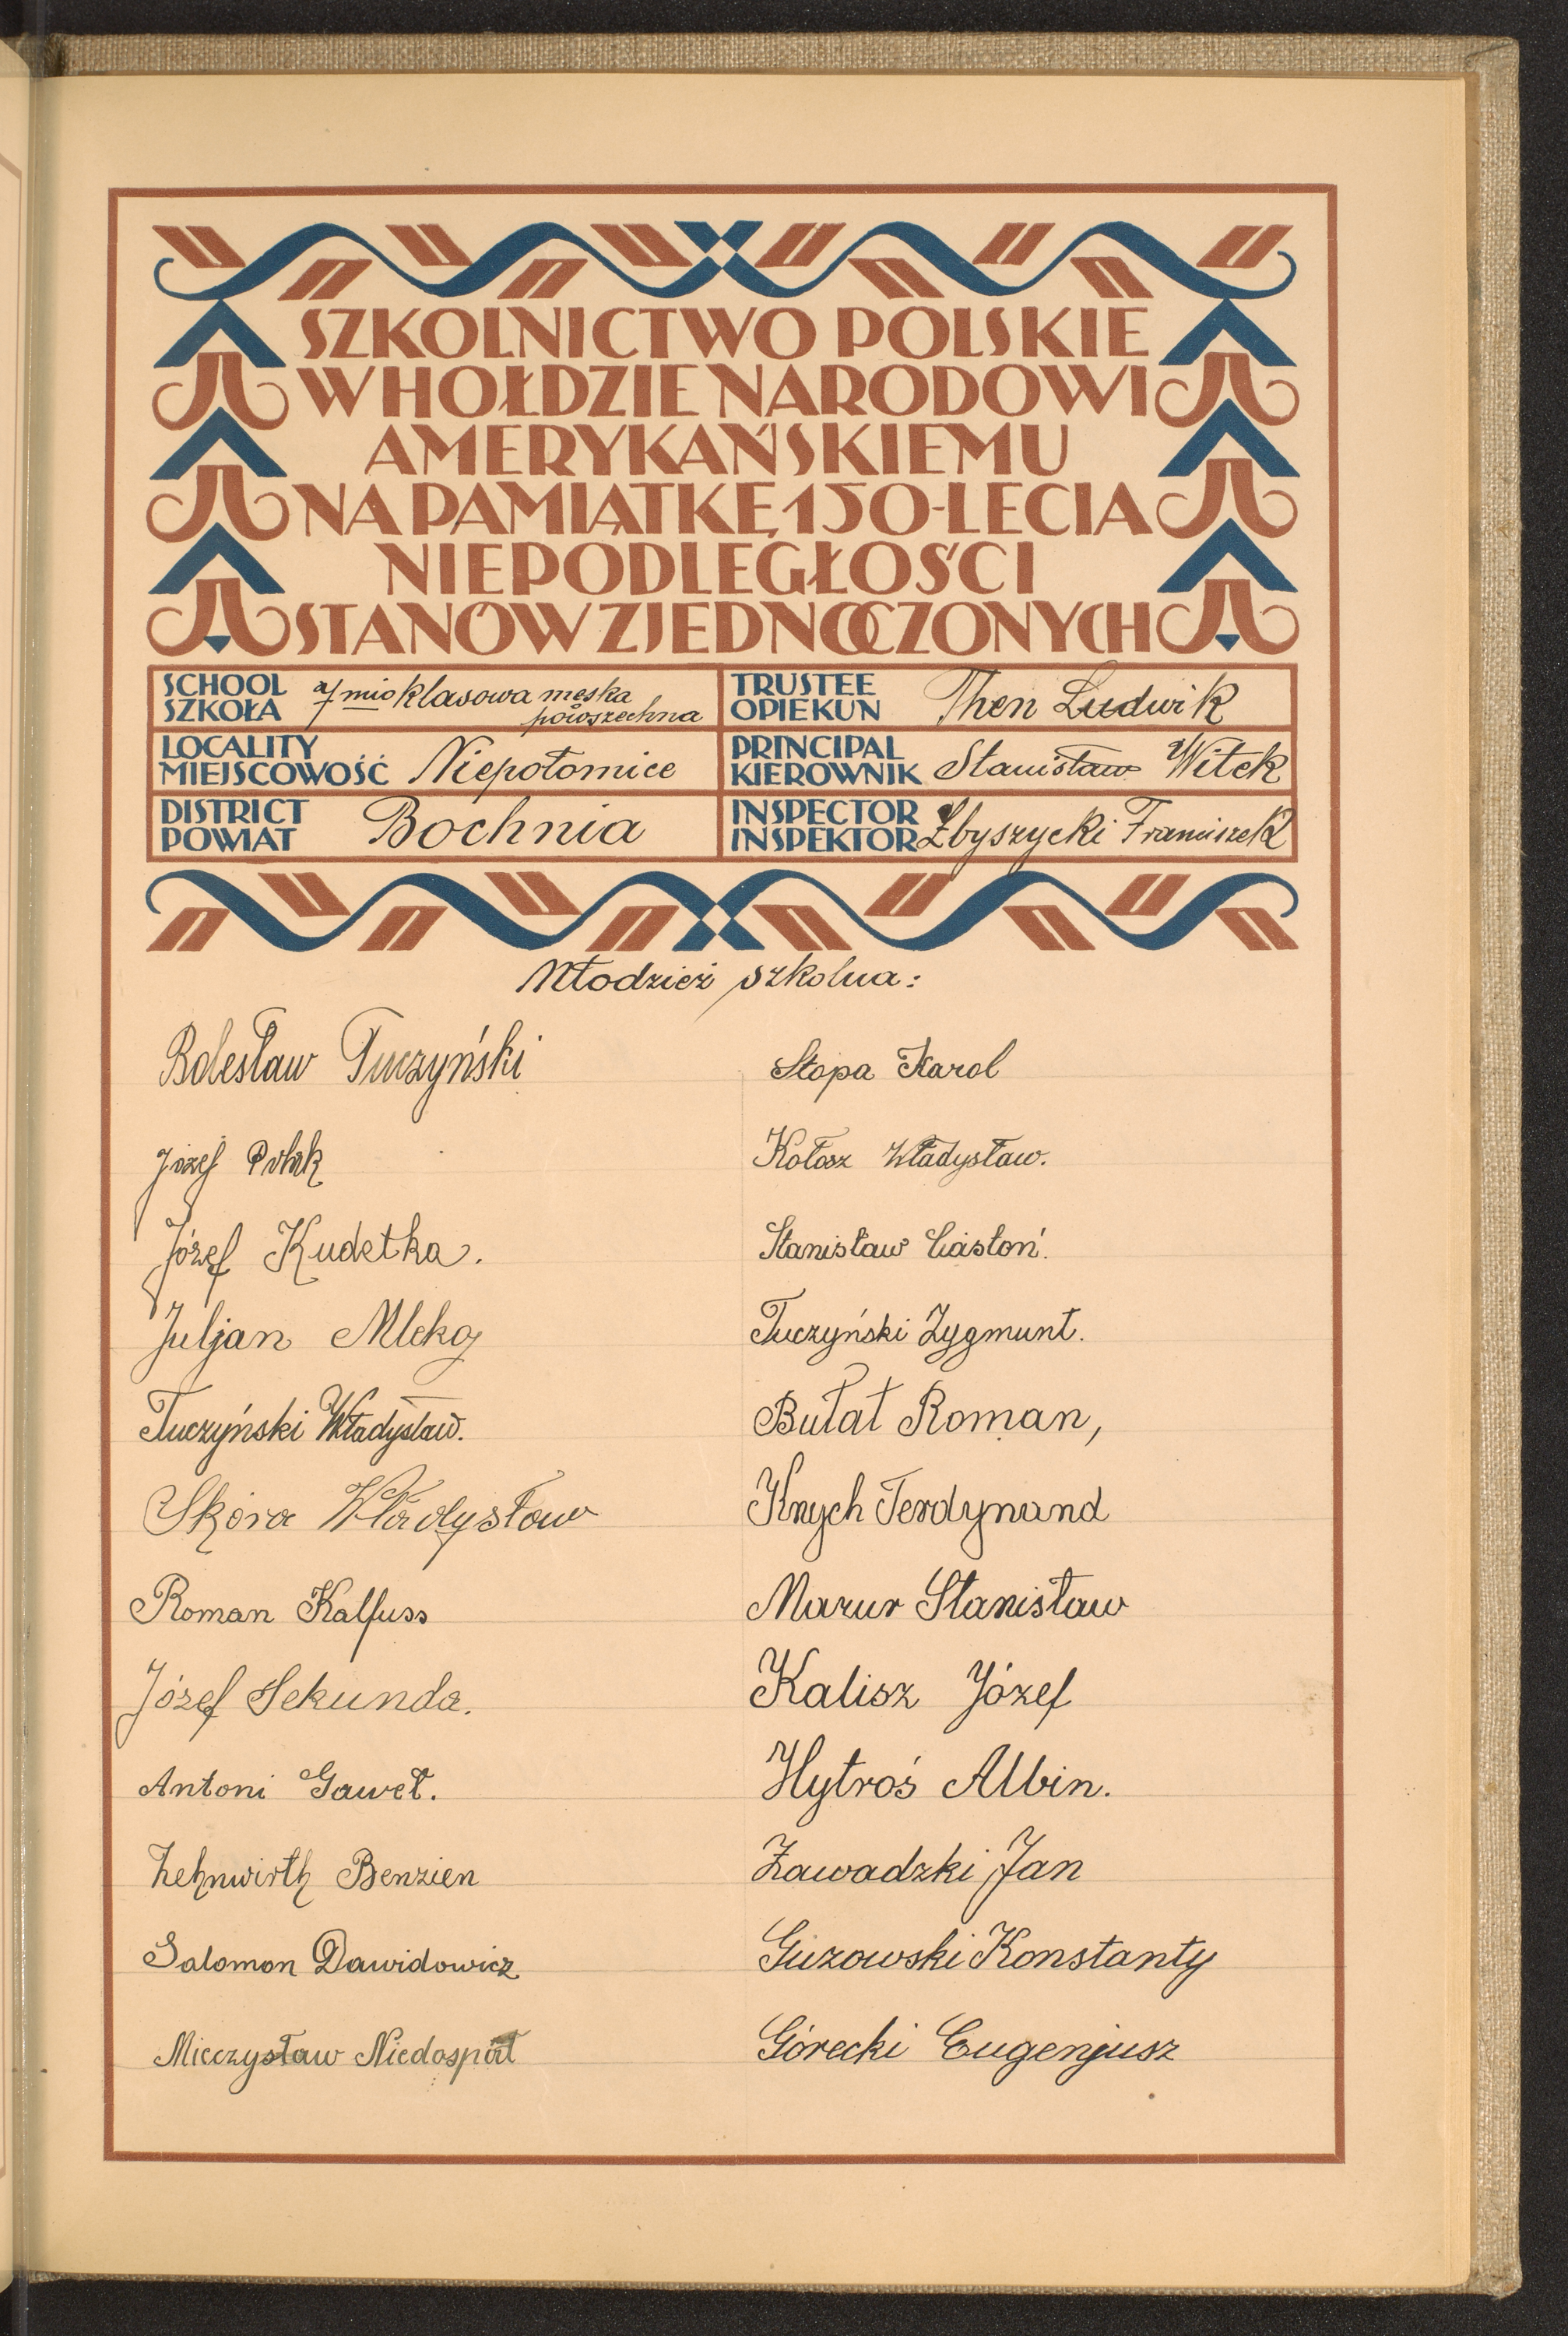 SZKOLNICTWO POLSKIE
W HOŁDZIE NARODOWI
AMERYKAŃSKIEMU
NA PAMIĄTKĘ 150-LECIA
NIEPODLEGŁOŚCI
STANÓW ZJEDNOCZONYCH
SCHOOL
SZKOŁA
7mio klasowa męska
powszechna
TRUSTEE
OPIEKUN
Then Ludwik
LOCALITY
MIEJSCOWOŚĆ
Niepołomice
PRINCIPAL
KIEROWNIK
Stanisław Witek
DISTRICT
POWIAT
Bochnia
INSPECTOR
INSPEKTOR
Zbyszycki Franciszek
Młodzież szkolna:
Bolesław Tuczyński
Józef
Józef Kudetka.
Juljan Mleko
Tuczyński Władysław.
Skóra Władysław
Roman Kalfuss
Józef Sekunda.
Antoni Gaweł.
Zehnwirth Benzien
Salomon Dawidowicz
Mieczysław Niedospiał
Stopa Karol
Kołosz Władysław.
Stanisław Ciastoń.
Tuczyński Zygmunt.
Bułat Roman,
Knych Ferdynand
Mazur Stanisław
Kalisz Józef
Hytroś Albin.
Zawadzki Jan
Guzowski Konstanty
Górecki Eugenjusz